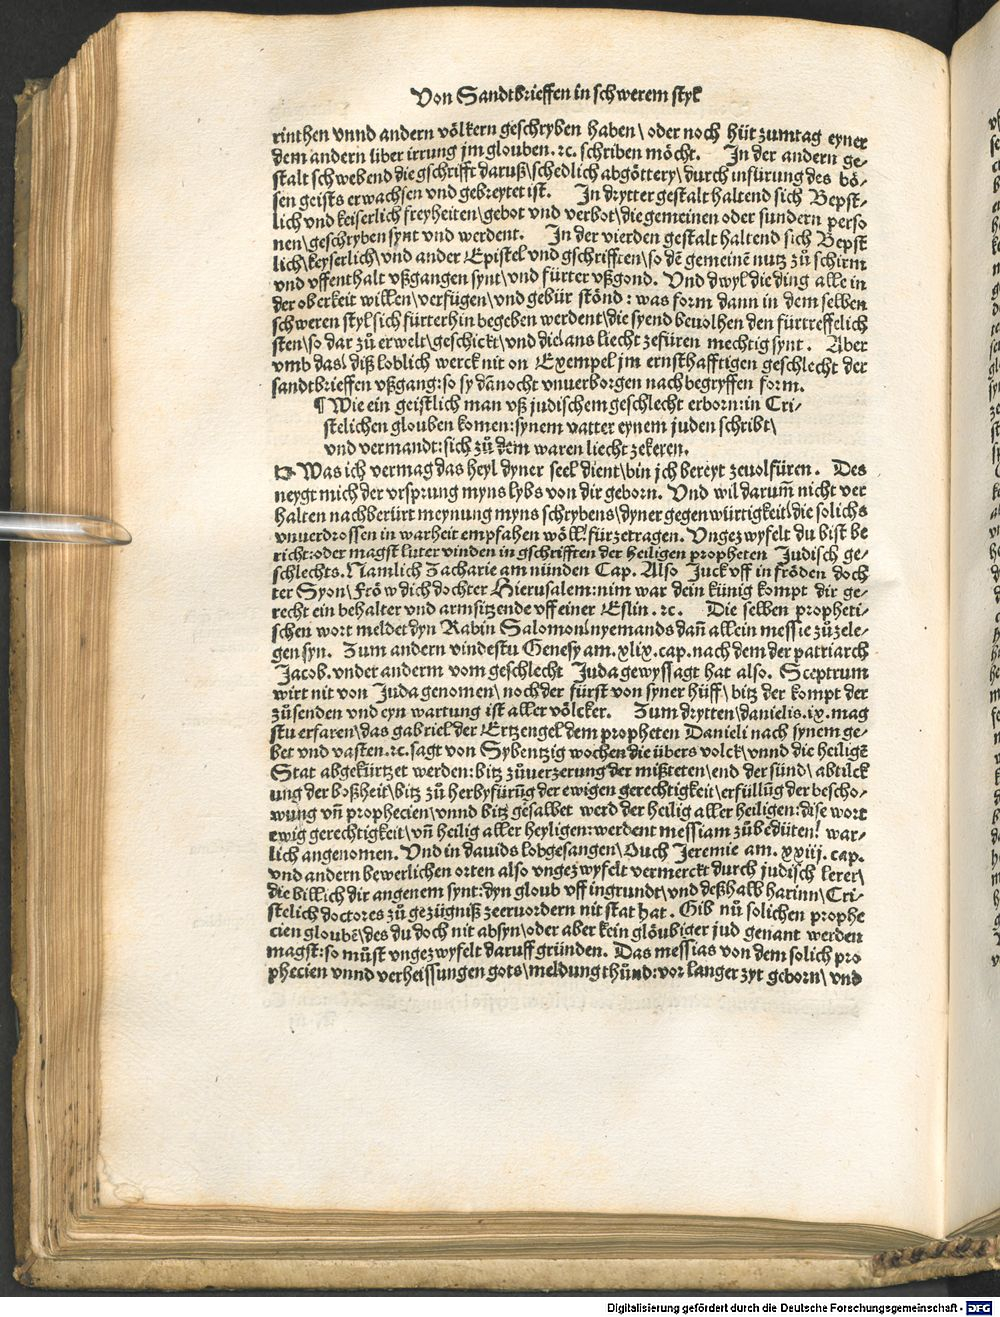 Von Sandtbrieffen in schwerem styl
rinthen vnnd andern völkern geschryben haben\ oder noch hüt zumtag eyner
dem andern liber irrung jm glouben. ⁊c. schriben möcht. In der andern ge⸗
stalt schwebend die gschrifft daruß\ schedlich abgöttery\ durch infürung des bö⸗
sen geists erwachsen vnd gebreytet ist. In drytter gestalt haltend sich Bepst⸗
lich vnd keiserlich freyheiten\ gebot vnd verbot\ die gemeinen oder sundern perso
nen\ geschryben synt vnd werdent. In der vierden gestalt haltend sich Bepst
lich\ keyserlich\ vnd ander Epistel vnd gschrifften\ so dē gemeinē nutz zů schirm
vnd vffenthalt vßgangen synt\ vnd fürter vßgond. Vnd dwyl die ding alle in
der oberkeit willen\ verfügen\ vnd gebür stönd: was form dann in dem selben
schweren styl sich fürterhin begeben werdent\ die syend beuolhen den fürtreffelich
sten\ so dar zů erwelt\ geschickt\ vnd die ans liecht zefüren mechtig synt. Aber
vmb das\ diß loblich werck nit on Exempel jm ernsthafftigen geschlecht der
sandtbrieffen vßgang: so sy dānocht vnuerborgen nachbegryffen form.
¶ Wie ein geistlich man vß judischem geschlecht erborn: in Cri⸗
stelichen glouben komen: synem vatter eynem juden schribt\
vnd vermandt: sich zů dem waren liecht zekeren.
Was ich vermag das heyl dyner seel dient\ bin jch bereyt zeuolfüren. Des
neygt mich der vrsprung myns lybs von dir geborn. Vnd wil darum̄ nicht ver
halten nachberürt meynung myns schrybens\ dyner gegenwürtigkeit\ die solichs
vnuerdrossen in warheit empfahen wöll! fürzetragen. Vngezwyfelt du bist be
richt: oder magst luter vinden in gschrifften der heiligen propheten Judisch ge⸗
schlechts. Namlich Zacharie am nünden Cap. Also Juck vff in fröden doch
ter Syon\ Fröw dich dochter Hierusalem: nim war dein künig kompt dir ge⸗
recht ein behalter vnd arm sitzende vff einer Eslin. ⁊c. Die selben propheti⸗
schen wort meldet dyn Rabin Salomon\ nyemands dan̄ allein messie zůzele⸗
gen syn. Zum andern vindestu Genesy am. xlix. cap. nach dem der patriarch
Jacob. vnder anderm vom geschlecht Juda gewyssagt hat also. Sceptrum
wirt nit von Juda genomen\ noch der fürst von syner hüff\ bitz der kompt der
zůsenden vnd eyn wartung ist aller völcker. Zum drytten\ danielis. ix. mag
stu erfaren\ das gabriel der Ertzengel dem propheten Danieli nach synem ge⸗
bet vnd vasten. ⁊c. sagt von Sybentzig wochen die übers volck\ vnnd die heiligē
Stat abgekürtzet werden: bitz zůuerzerung der mißteten\ end der sünd\ abtilck
ung der boßheit\ bitz zů herbyfürūg der ewigen gerechtigkeit\ erfüllūg der bescho⸗
wung vn̄ prophecien\ vnnd bitz gesalbet werd der heilig aller heiligen: dise wort
ewig gerechtigkeit\ vn̄ heilig aller heyligen: werdent messiam zůbedüten! war⸗
lich angenomen. Vnd in dauids lobgesangen\ Ouch Jeremie am. xxiij. cap.
vnd andern bewerlichen orten also vngezwyfelt vermerckt durch judisch lerer\
die billich dir angenem synt: dyn gloub vff ingrundt\ vnd deßhalb harinn\ Cri⸗
stelich doctores zů gezügniß zeeruordern nit stat hat. Gib nů solichen prophe
cien gloubē\ des du doch nit absyn\ oder aber kein glöubiger jud genant werden
magst: so můst vngezwyfelt daruff gründen. Das messias von dem solich pro
phecien vnnd verheissungen gots\ meldung thůnd: vor langer zyt geborn\ vnd
Digitalisierung gefördert durch die Deutsche Forschungsgemeinschaft - DFG